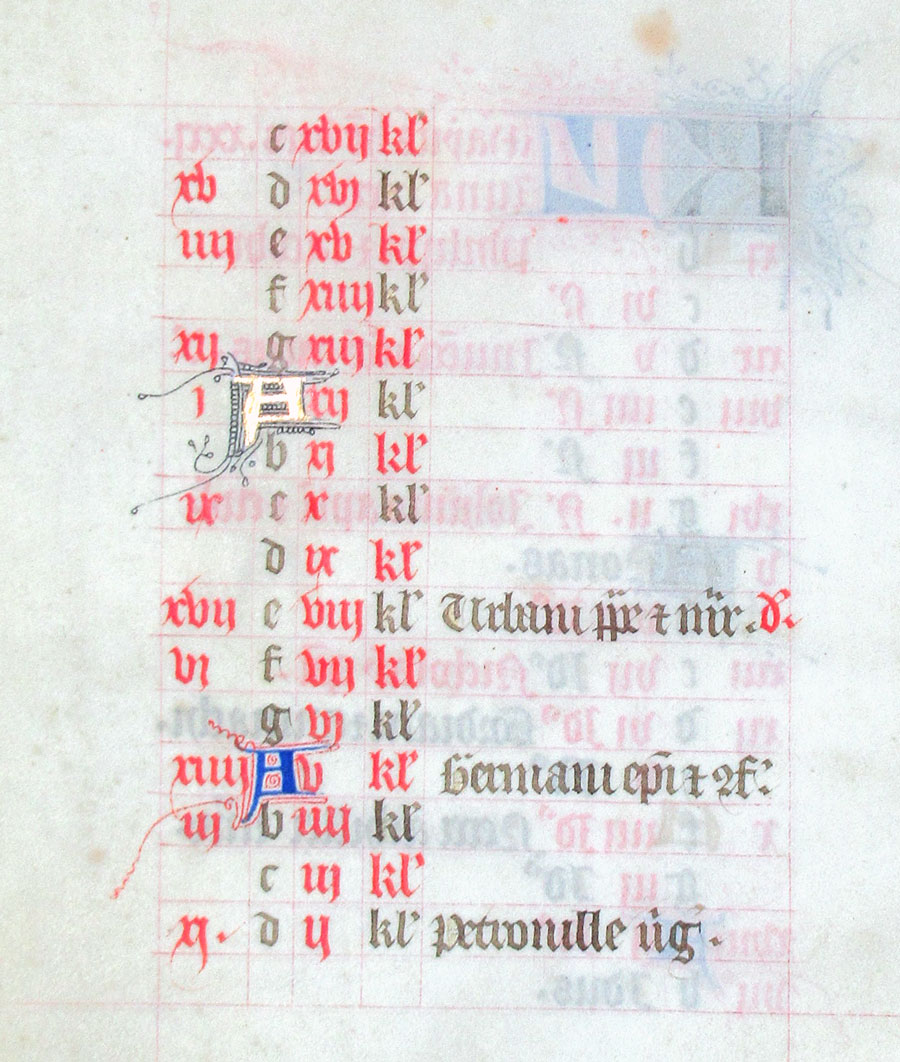 c xvij kl'
xv d xvj kl'
iiij e xv kl'
f xiiij kl'
xij g xiij kl'
j A xij kl'
b xj kl'
ix c x kl'
d ix kl'
xvij e viij kl' Urbani ppe et mr̄. D.
vj f vij kl'
g vj kl'
xiiij A v kl' Germani epī et 2f.
iij b iiij kl'
c iij kl'
xj. d ij kl' petronille v̄g.